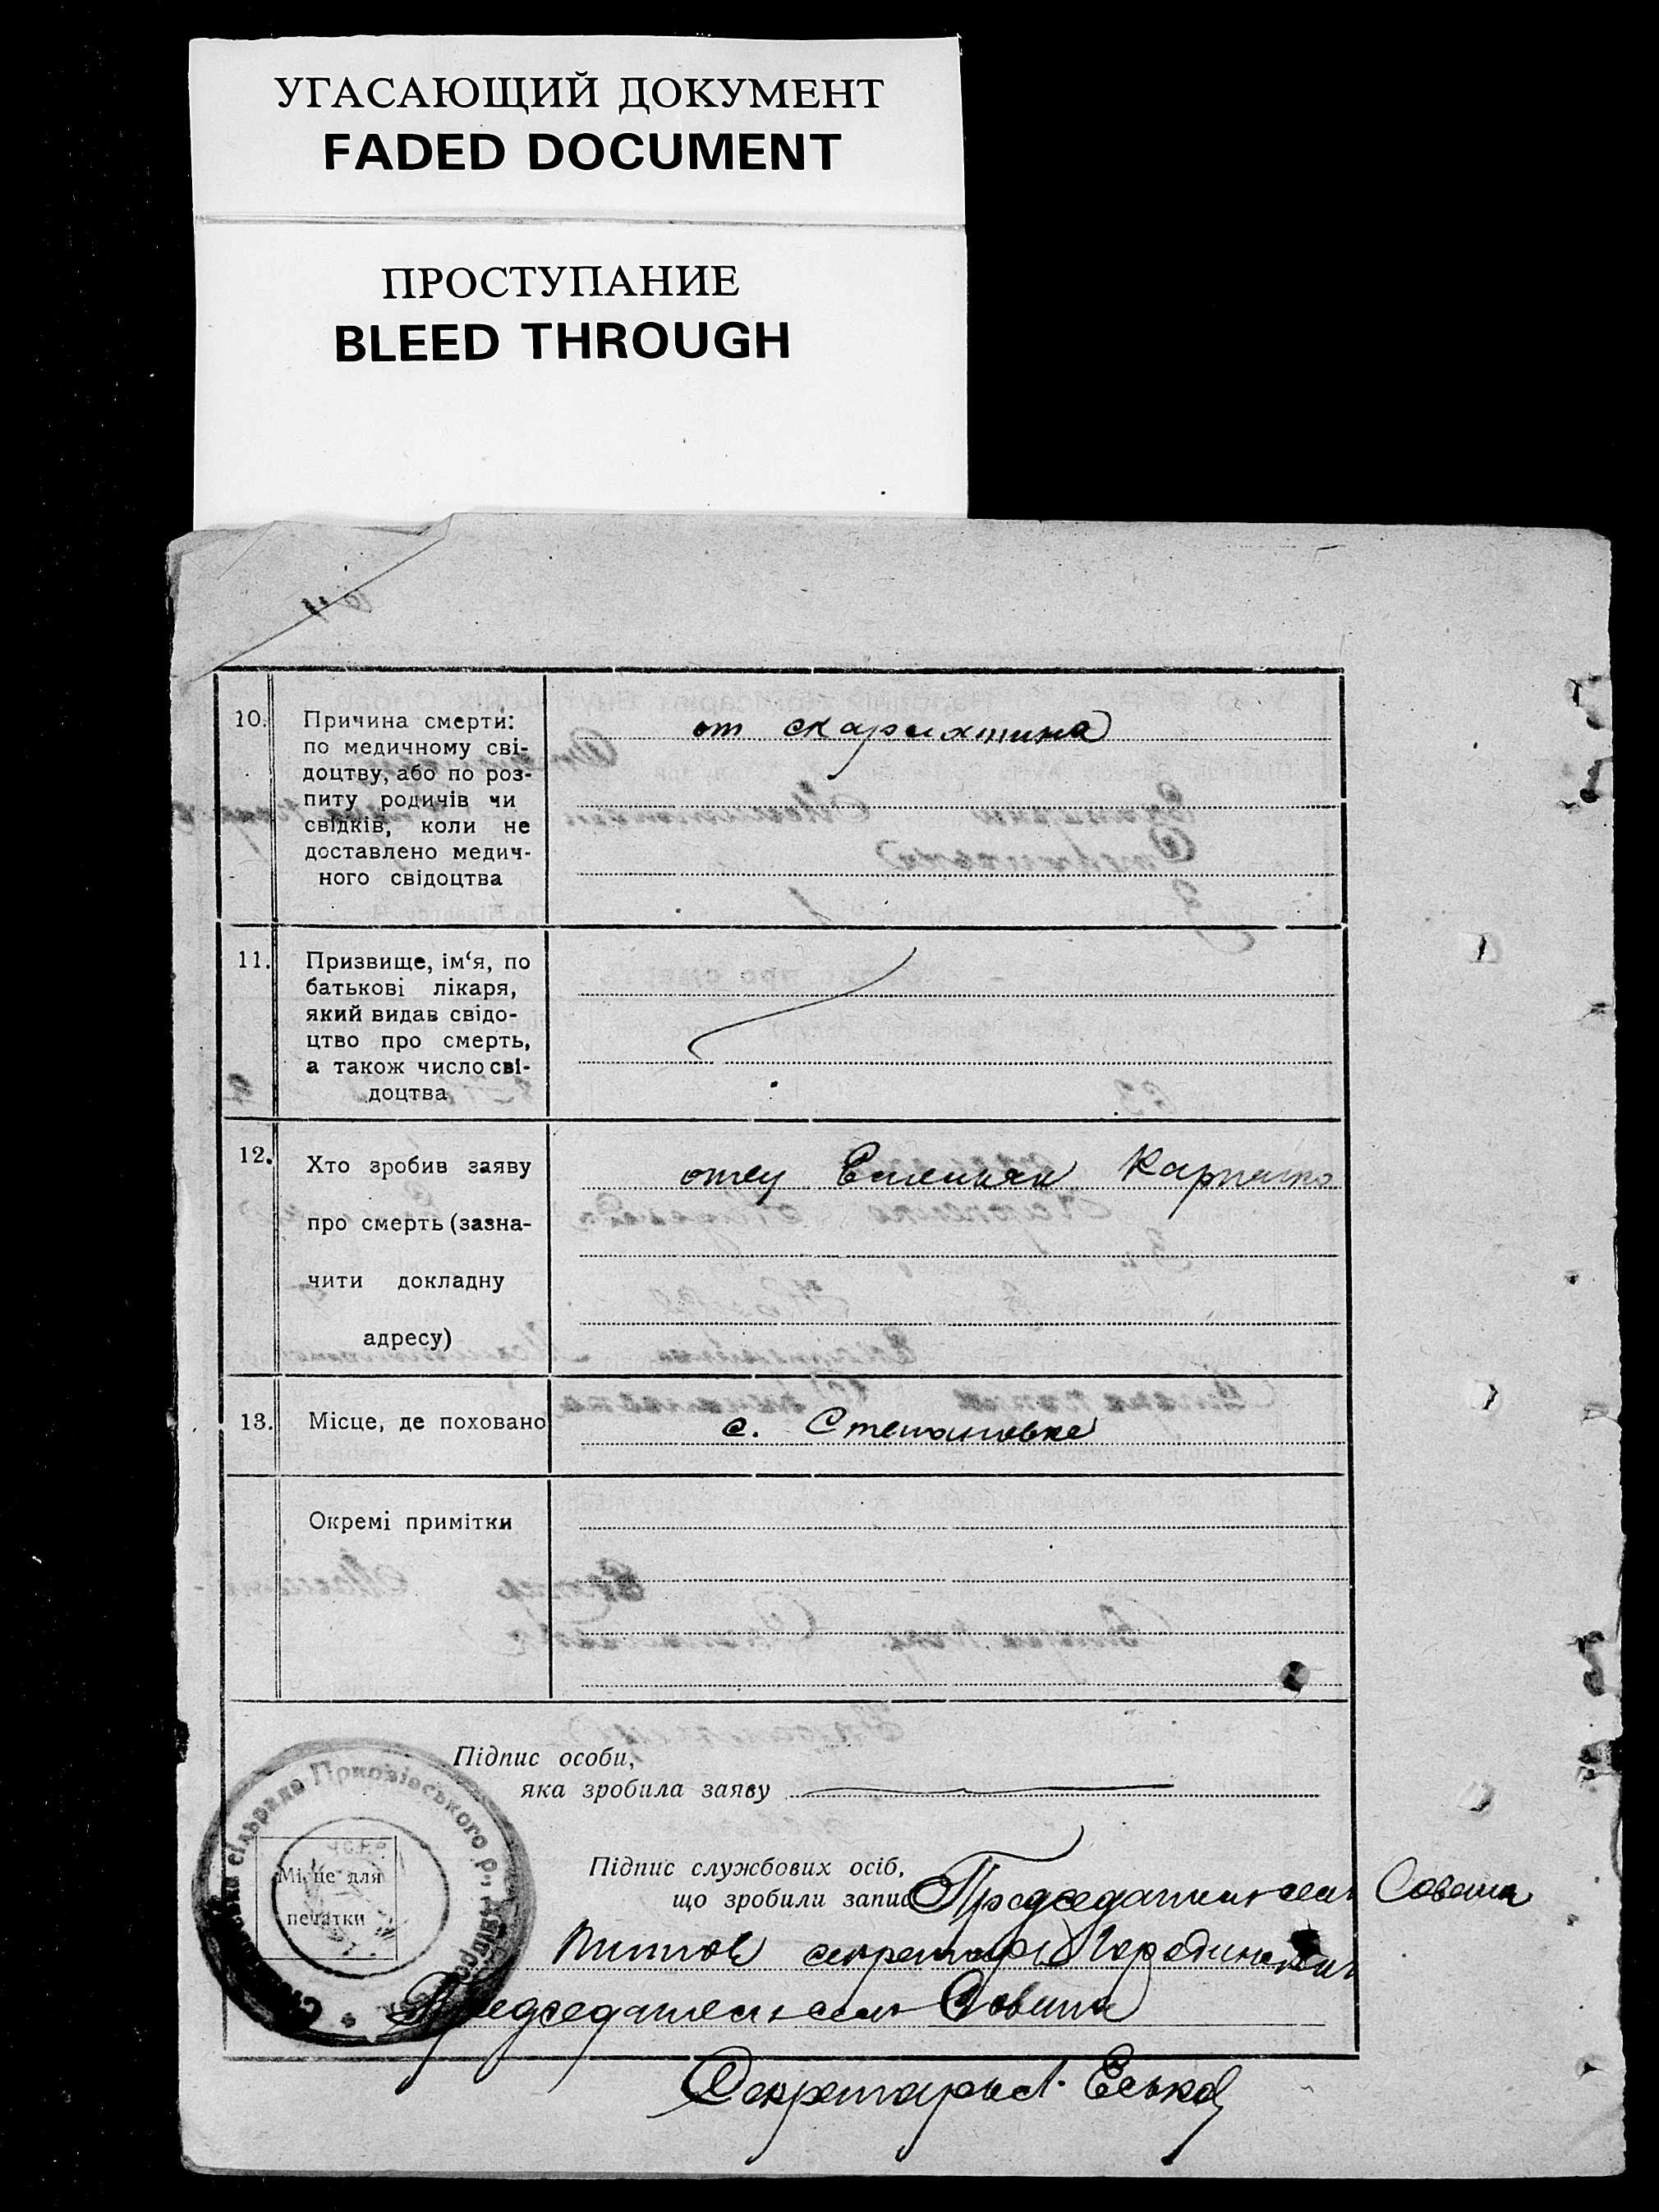 УГАСАЮЩИЙ ДОКУМЕНТ
FADED DOCUMENT
ПРОСТУПАНИЕ
BLEED THROUGH
10. Причина смерти:
по медичному сві-
доцтву, або по роз-
питу родичів чи
свідків, коли не
доставлено медич-
ного свідоцтва
от скарлатина
11. Призвище, ім‘я, по
батькові лікаря,
який видав свідо-
цтво про смерть,
а також число сві-
доцтва
12. Хто зробив заяву
про смерть (зазна-
чити докладну
адресу)
отец Емельян
13. Місце, де поховано
с. Степановке
Окремі примітки
Підпис особи,
яка зробила заяву
Підпис службових осіб,
що зробили запис Председатель сель Совета
секретарь
Председатель сель Совета
Секретарь
Місце для
печатки
сільрада Приазівського р.